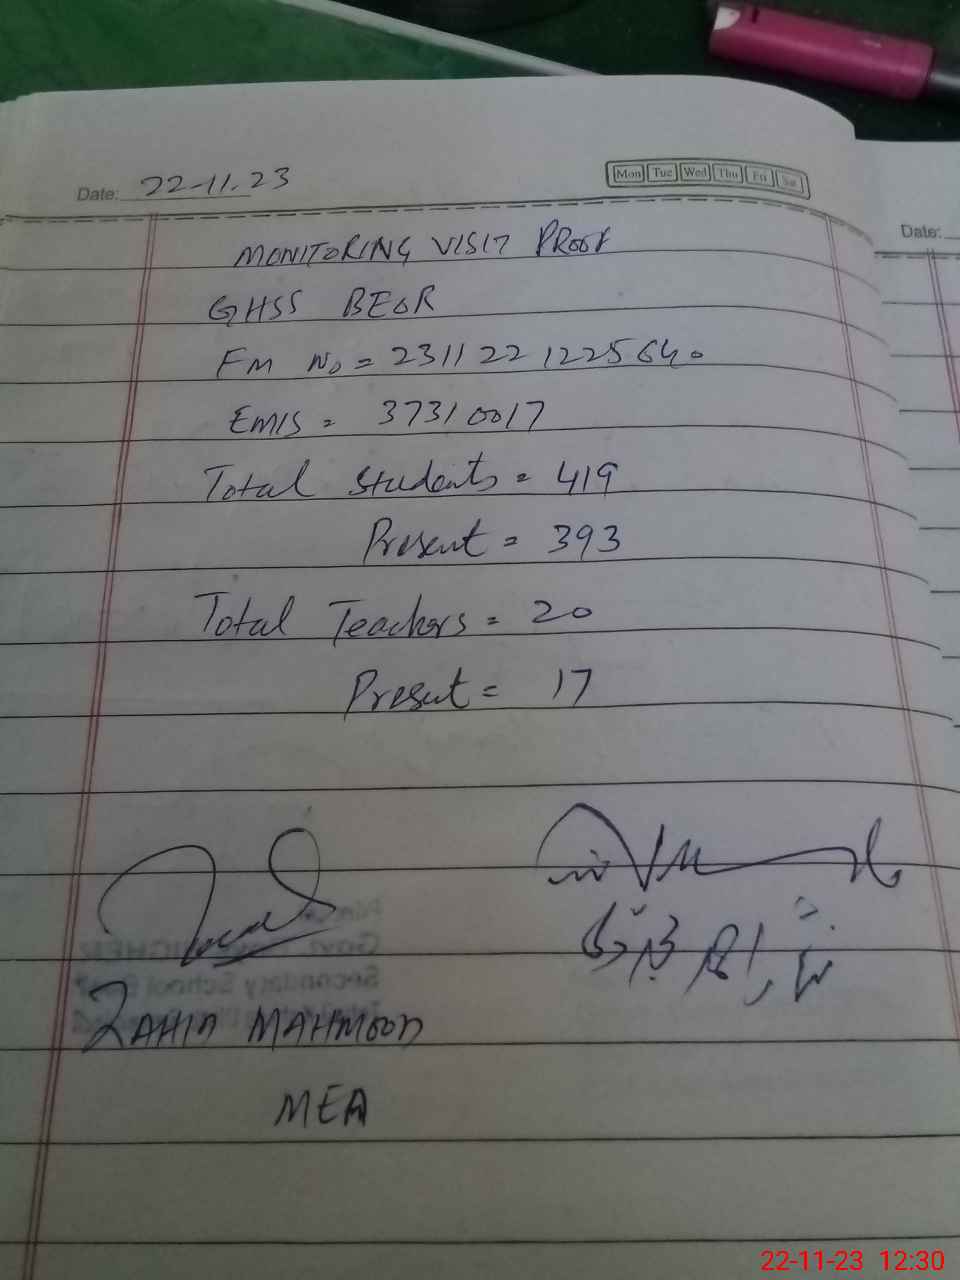 Date: 22-11-23
Mon Tue Wed Thu Fri Sat
Date:
MONITORING VISIT PROOF
GHSS BEOR
FM No = 2311221225640
EMIS = 37310017
Total Students = 419
Present = 393
Total Teachers = 20
Present = 17
ZAHID MAHMOOD
MEA
22-11-23 12:30